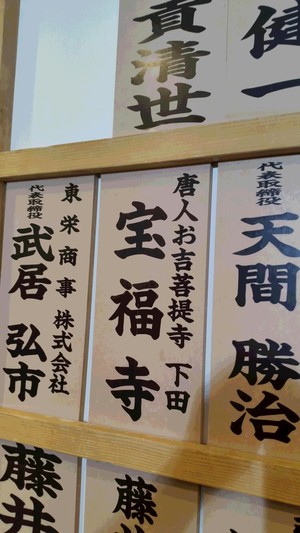 健一
貢清世
代表取締役
天間勝治
唐人お吉菩提寺 下田
宝福寺
東栄商事株式会社
代表取締役
武居弘市
藤
藤井